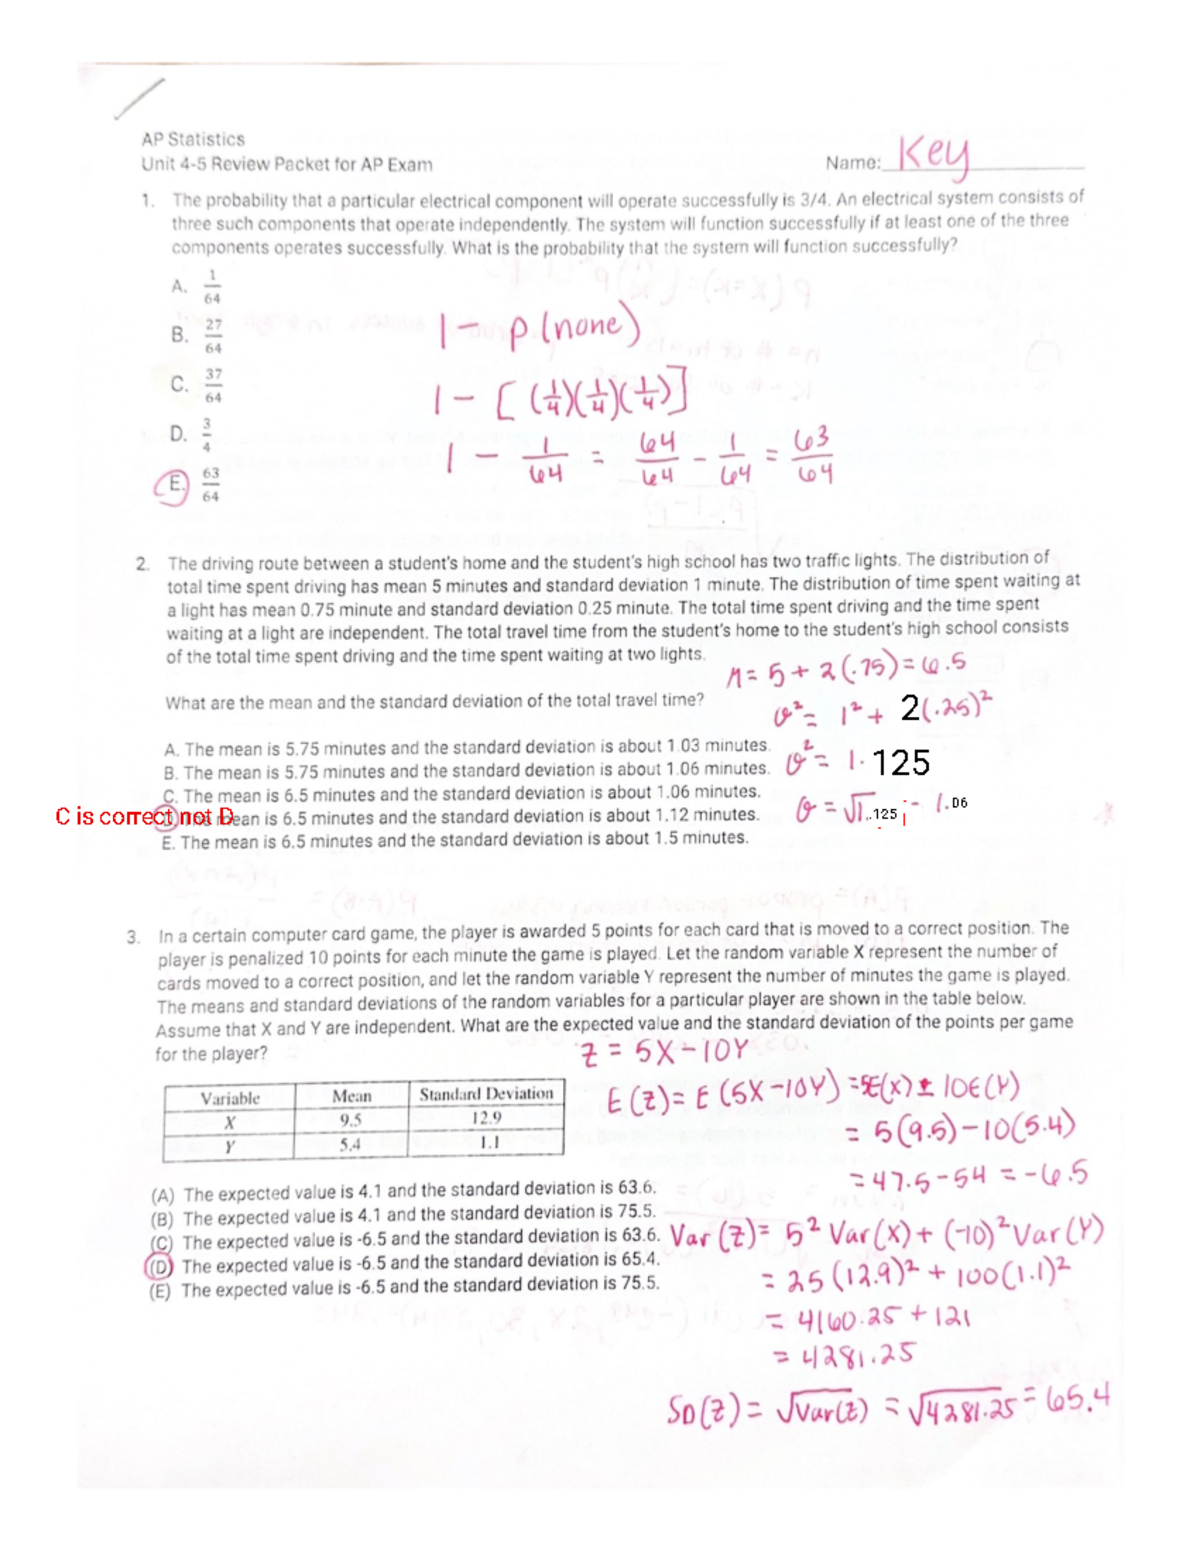 AP Statistics
Unit 4-5 Review Packet for AP Exam
Name: Key
1. The probability that a particular electrical component will operate successfully is 3/4. An electrical system consists of
three such components that operate independently. The system will function successfully if at least one of the three
components operates successfully. What is the probability that the system will function successfully?
A. 1/64
B. 27/64
C. 37/64
D. 3/4
E. 63/64
1 - P(none)
1 - [(1/4)(1/4)(1/4)]
1 - 1/64 = 64/64 - 1/64 = 63/64
2. The driving route between a student's home and the student's high school has two traffic lights. The distribution of
total time spent driving has mean 5 minutes and standard deviation 1 minute. The distribution of time spent waiting at
a light has mean 0.75 minute and standard deviation 0.25 minute. The total time spent driving and the time spent
waiting at a light are independent. The total travel time from the student's home to the student's high school consists
of the total time spent driving and the time spent waiting at two lights.
M = 5 + 2(.75) = 6.5
What are the mean and the standard deviation of the total travel time?
σ² = 1² + 2(.25)²
A. The mean is 5.75 minutes and the standard deviation is about 1.03 minutes.
B. The mean is 5.75 minutes and the standard deviation is about 1.06 minutes.
σ² = 1.125
C. The mean is 6.5 minutes and the standard deviation is about 1.06 minutes.
C is correct not D
mean is 6.5 minutes and the standard deviation is about 1.12 minutes.
σ = √1.125 = 1.06
E. The mean is 6.5 minutes and the standard deviation is about 1.5 minutes.
3. In a certain computer card game, the player is awarded 5 points for each card that is moved to a correct position. The
player is penalized 10 points for each minute the game is played. Let the random variable X represent the number of
cards moved to a correct position, and let the random variable Y represent the number of minutes the game is played.
The means and standard deviations of the random variables for a particular player are shown in the table below.
Assume that X and Y are independent. What are the expected value and the standard deviation of the points per game
for the player?
Z = 5X - 10Y
Variable Mean Standard Deviation
X 9.5 12.9
Y 5.4 1.1
E(Z) = E(5X - 10Y) = 5E(X) ± 10E(Y)
= 5(9.5) - 10(5.4)
= 47.5 - 54 = -6.5
(A) The expected value is 4.1 and the standard deviation is 63.6.
(B) The expected value is 4.1 and the standard deviation is 75.5.
(C) The expected value is -6.5 and the standard deviation is 63.6.
(D) The expected value is -6.5 and the standard deviation is 65.4.
(E) The expected value is -6.5 and the standard deviation is 75.5.
Var(Z) = 5² Var(X) + (-10)² Var(Y)
= 25(12.9)² + 100(1.1)²
= 4160.25 + 121
= 4281.25
SD(Z) = √Var(Z) = √4281.25 = 65.4